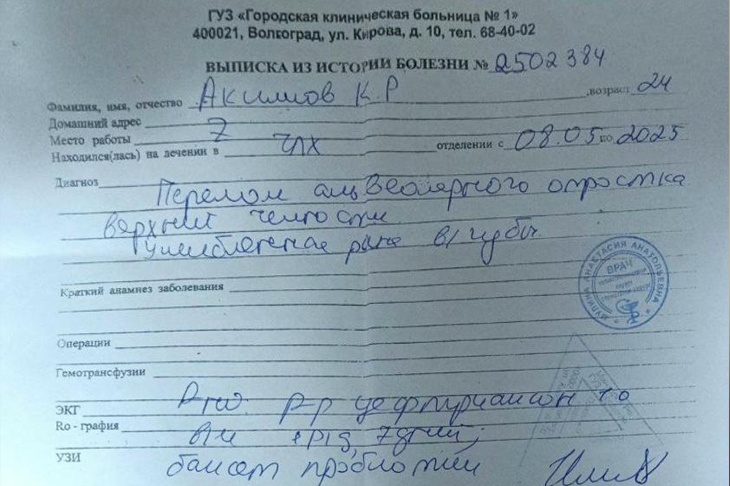 ГУЗ «Городская клиническая больница № 1»
400021, Волгоград, ул. Кирова, д. 10, тел. 68-40-02
ВЫПИСКА ИЗ ИСТОРИИ БОЛЕЗНИ № 2502384
Фамилия, имя, отчество Акимов К.Р ,возраст 24
Домашний адрес
Место работы
Находился(лась) на лечении в ЧЛХ отделении с 08.05 по 2025
Диагноз Перелом альвеолярного отростка
верхней челюсти
Ушибленная рана в/губы
Краткий анамнез заболевания
Операции
Гемотрансфузии
ЭКГ р-р цефтриаксон 1,0
Ro - графия в/м 7 дней;
УЗИ
ВРАЧ
АНАСТАСИЯ АНАТОЛЬЕВНА